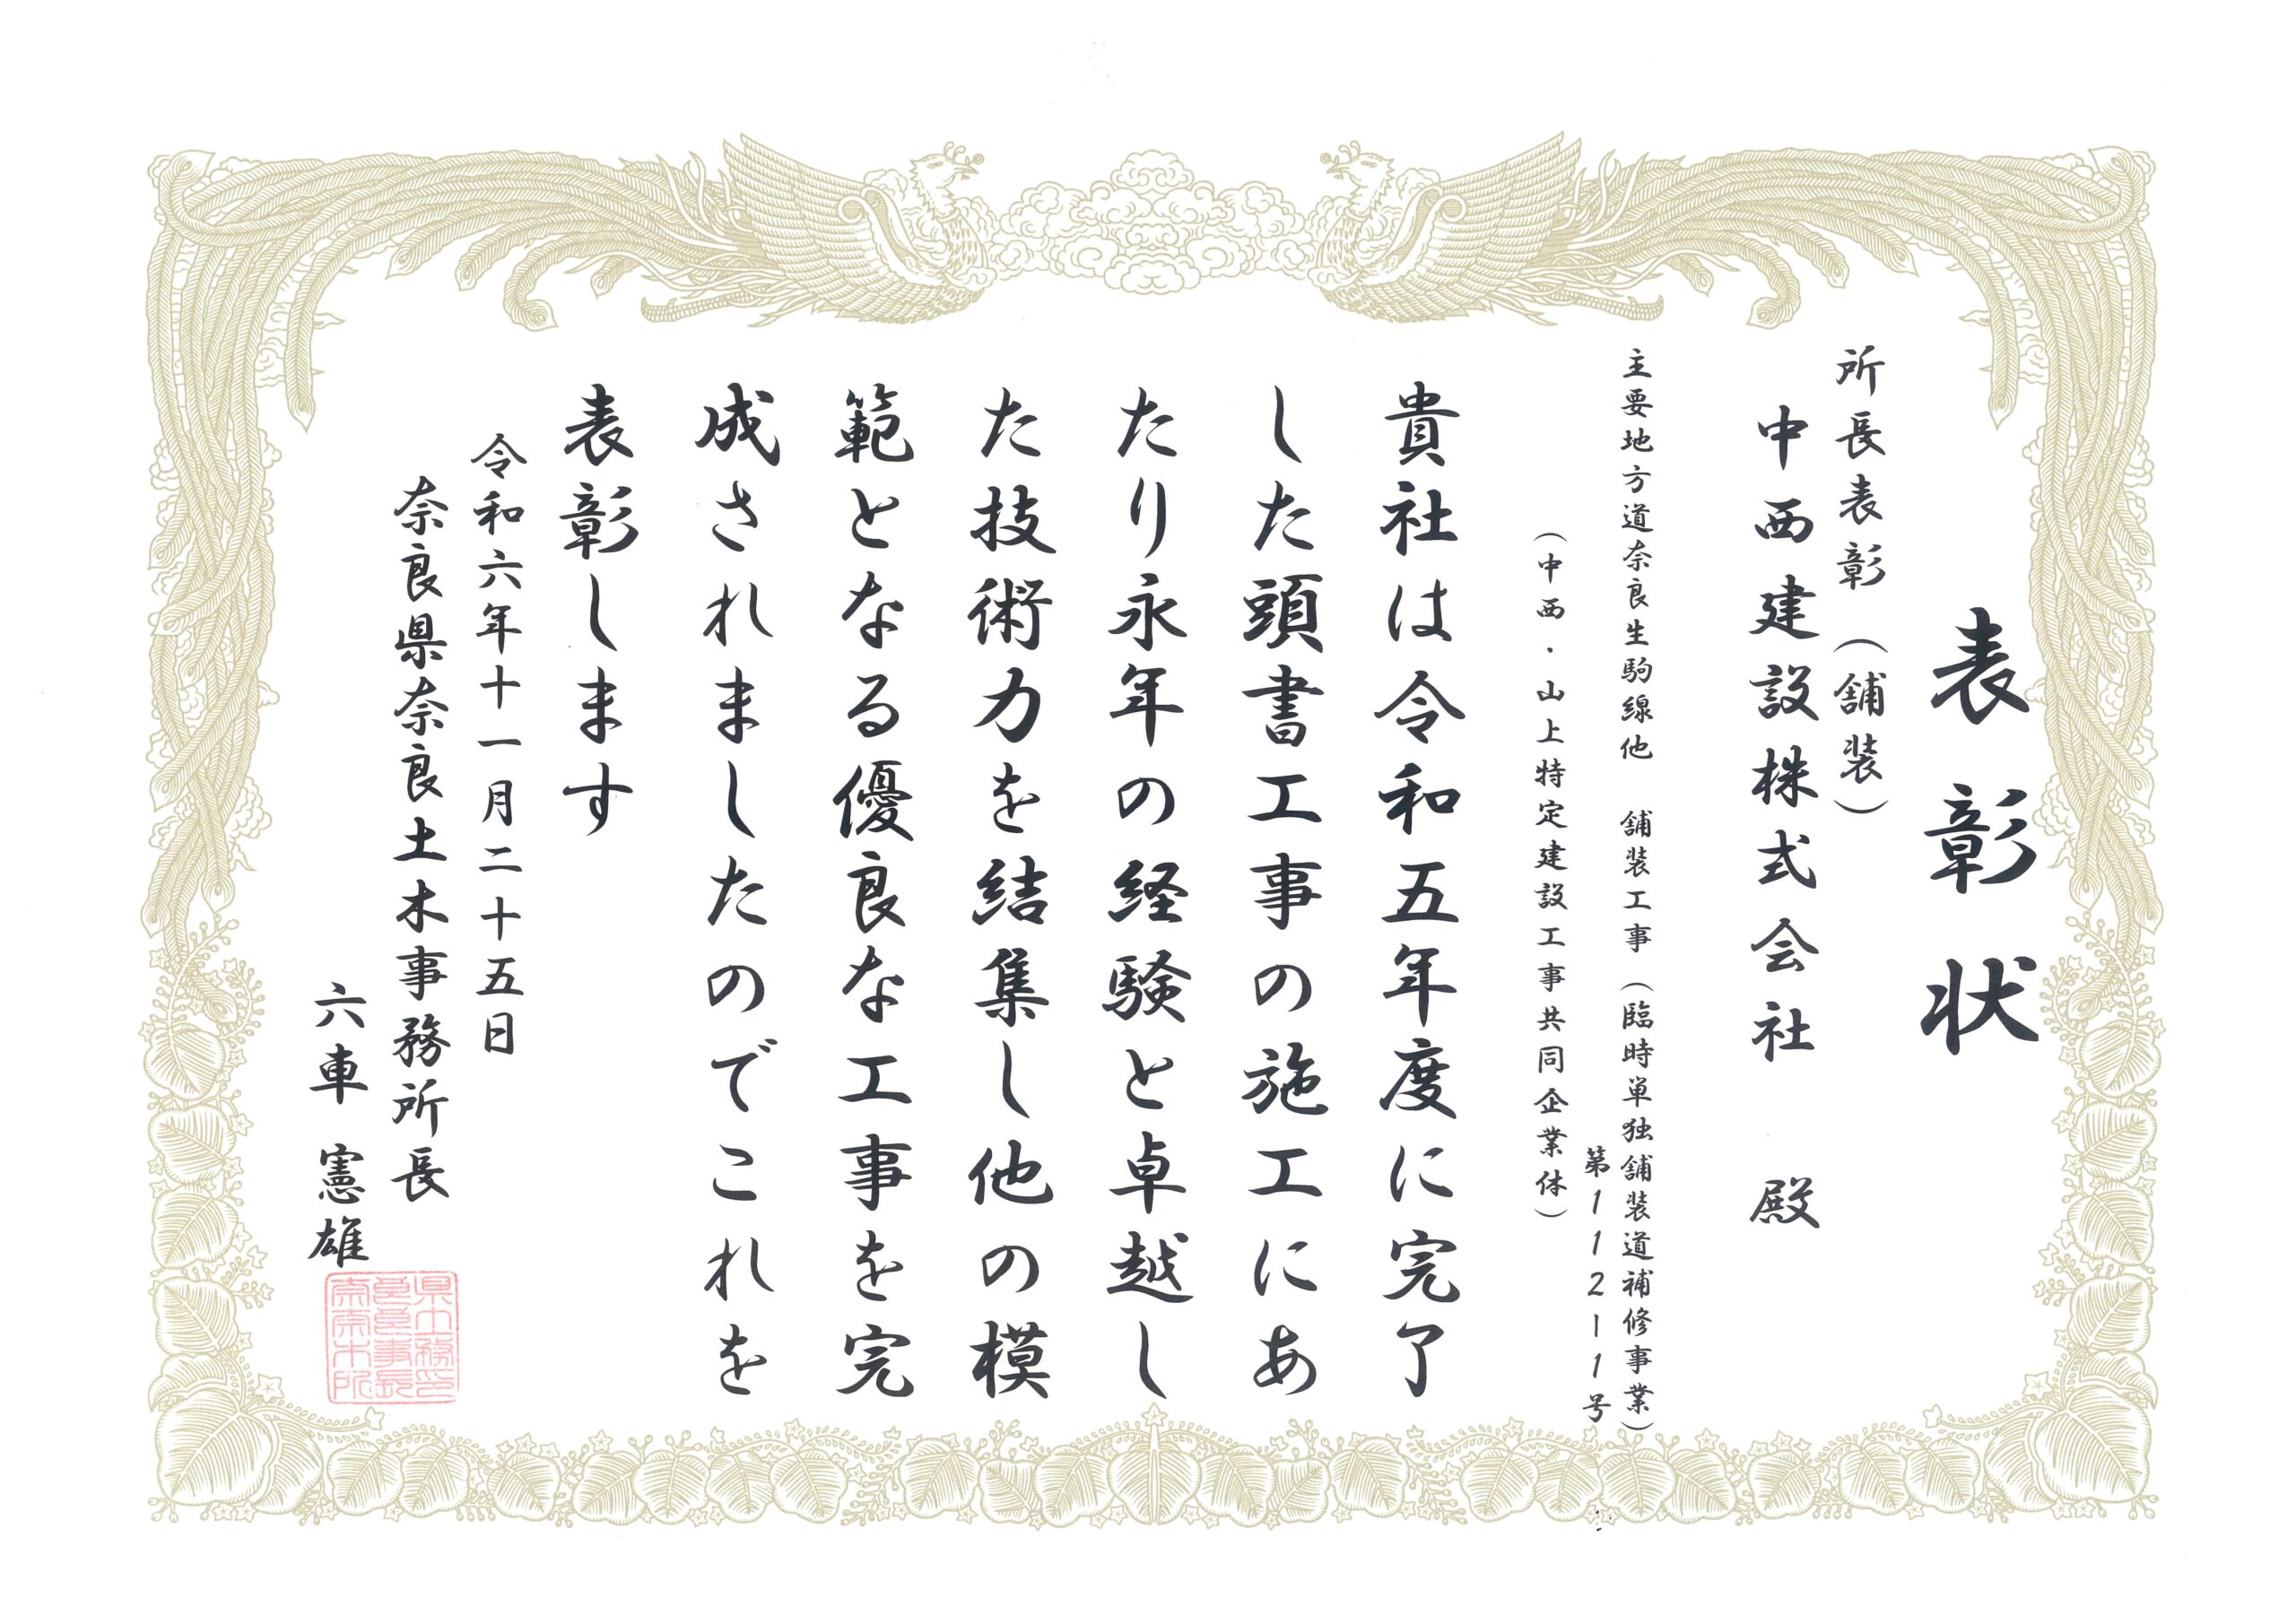 表彰状
所長表彰（舗装）
中西建設株式会社　殿
主要地方道奈良生駒線他　舗装工事（臨時単独舗装道補修事業）
第１１２－１－１号
（中西・山上特定建設工事共同企業体）
貴社は令和五年度に完了
した頭書工事の施工にあ
たり永年の経験と卓越し
た技術力を結集し他の模
範となる優良な工事を完
成されましたのでこれを
表彰します
令和六年十一月二十五日
奈良県奈良土木事務所長
六車　憲雄